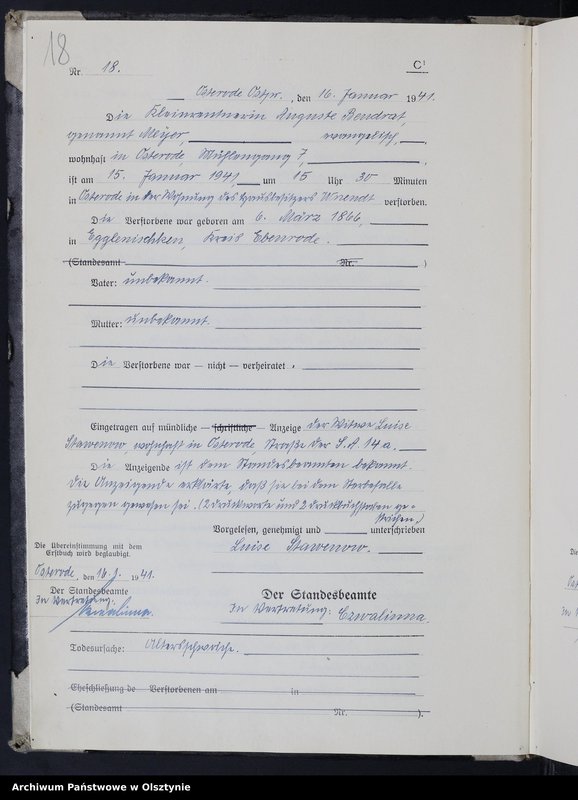 18
Nr. 18. C¹
Osterode Ostpr., den 16. Januar 1941.
Die Kleinrentnerin Auguste Bendrat,
genannt Meyer, evangelisch,
wohnhaft in Osterode, Mühlengang 7,
ist am 15. Januar 1941, um 15 Uhr 30 Minuten
in Osterode in der Wohnung des Hausbesitzers verstorben.
Die Verstorbene war geboren am 6. März 1866,
in Egglenischken, Kreis Ebenrode.
(Standesamt Nr. )
Vater: unbekannt.
Mutter: unbekannt.
Die Verstorbene war — nicht — verheiratet.
Eingetragen auf mündliche — schriftliche — Anzeige der Witwe Luise
Stawenow, wohnhaft in Osterode, Straße der S.A. 14a.
Die Anzeigende ist dem Standesbeamten bekannt.
Die Anzeigende erklärte, daß sie bei dem Sterbefalle
zugegen gewesen sei. (2 Druckworte und 2 Druckbuchstaben ge-
strichen.)
Vorgelesen, genehmigt und unterschrieben
Luise Stawenow.
Die Übereinstimmung mit dem
Erstbuch wird beglaubigt.
Osterode, den 16. 1. 1941.
Der Standesbeamte
In Vertretung:
Czwalinna.
Der Standesbeamte
In Vertretung: Czwalinna.
Todesursache: Altersschwäche.
Eheschließung de Verstorbenen am in
(Standesamt Nr. ).
Archiwum Państwowe w Olsztynie